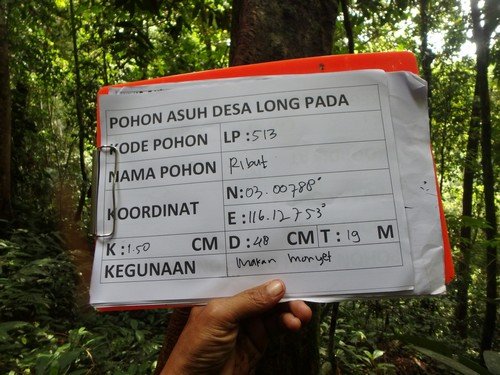 POHON ASUH DESA LONG PADA
KODE POHON LP : 513
NAMA POHON Ribut
KOORDINAT N: 03.00788°
E : 116.12753°
K : 1.50 CM D : 48 CM T : 19 M
KEGUNAAN Makan monyet